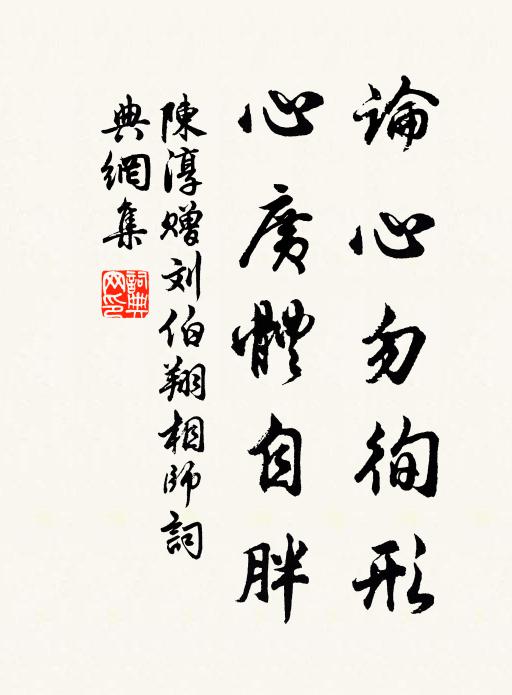 論心勿徇形
心廣體自胖
陳淳赠刘伯翔相師詞
典網集
詞典
网印